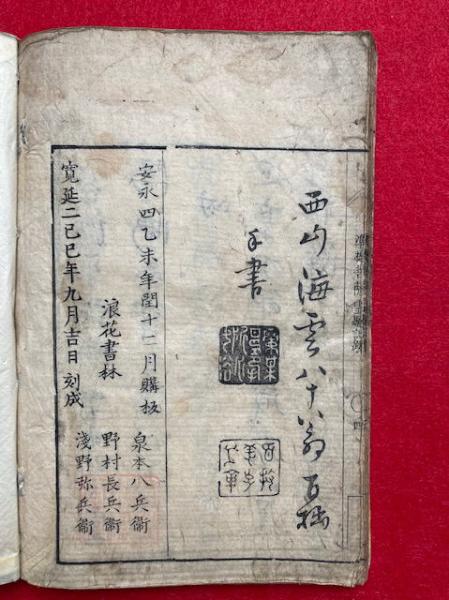 西山海雲八十翁百拙
手書
安永四乙未年閏十二月購板
浪花書林
泉本八兵衞
野村長兵衞
淺野弥兵衞
寛延二己巳年九月吉日刻成